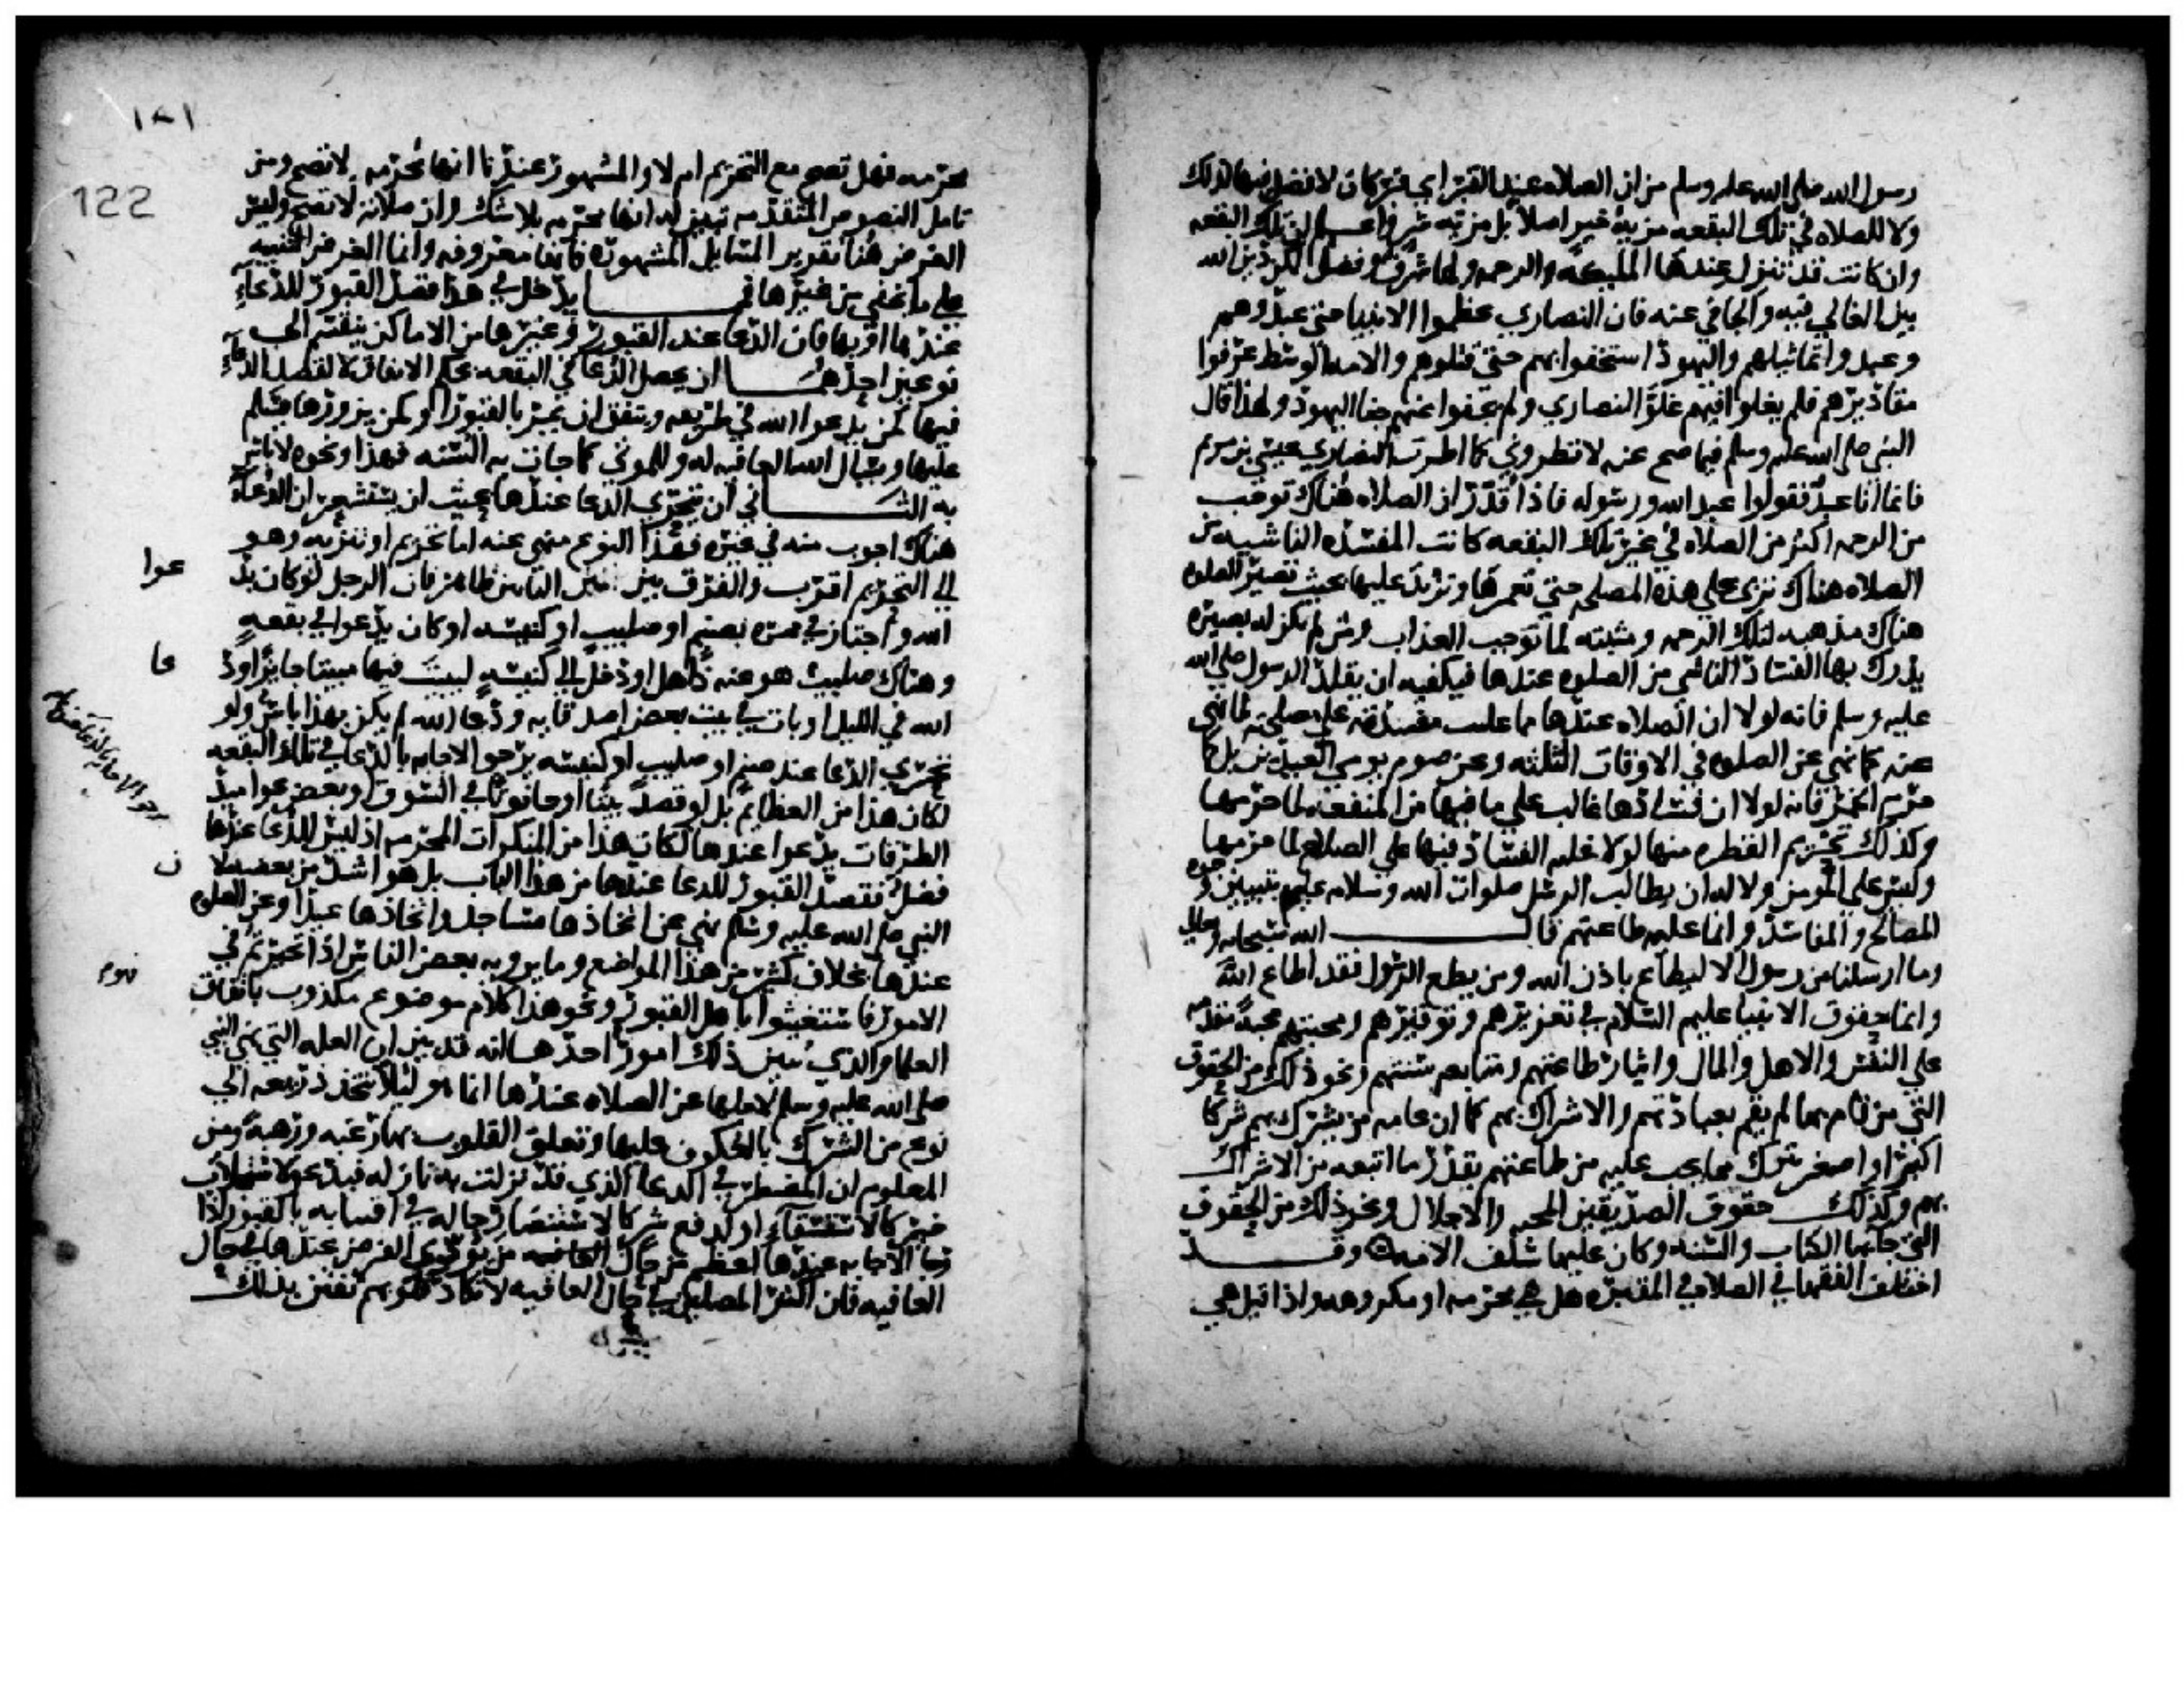 رسول الله صلى الله عليه وسلم من ان الصلاه عند القبر اي قبر كان لا فضل فيها لذلك
ولا للصلاه في تلك البقعه مزية خير اصلا بل مزية شر واعلم ان تلك البقعه
وان كانت قد تنزل عندها المليكه والرحمه ولها شرف وفضل لكن دين الله
بين الغالي فيه والجافي عنه فان النصاري عظموا الانبيا حتى عبدوهم
وعبدوا تماثيلهم واليهود استخفوا بهم حتى قتلوهم والامه الوسط عرفوا
مقاديرهم فلم يغلوا فيهم غلو النصاري ولم يجفوا عنهم جفا اليهود ولهذا قال
النبي صلى الله عليه وسلم فيما صح عنه لا تطروني كما اطرت النصاري عيسى بن مريم
فانما انا عبد فقولوا عبد الله ورسوله فاذا قدر ان الصلاه هناك توجب
من الرحمه اكثر من الصلاه في غير تلك البقعه كانت المفسده الناشيه من
الصلاه هناك تربى على هذه المصلحه حتى تغمرها وتزيد عليها بحيث تصير الصلوه
هناك مذهبه لتلك الرحمه ومثبته لما توجب العذاب ومن لم يكن له بصيره
يدرك بها الفساد الناشي من الصلوه عندها فيكفيه ان يقلد الرسول صلى الله
عليه وسلم فانه لولا ان الصلاه عندها مما غلبت مفسدته على مصلحته لما نهى
عنه كما نهي عن الصلوه في الاوقات الثلثه وعن صوم يومي العيدين بل كما
حرم الخمر فانه لولا ان فسادها غالب على ما فيها من المنفعه لما حرمها
وكذلك تحريم القطره منها لولا غلبه الفساد فيها على الصلاح لما حرمها
وليس على المومن ولا له ان يطالب الرسل صلوات الله وسلامه عليهم بتبيين وجوه
المصالح والمفاسد وانما عليه طاعتهم قال الله سبحانه وتعالى
وما ارسلنا من رسول الا ليطاع باذن الله ومن يطع الرسول فقد اطاع الله
وانما حقوق الانبيا عليهم السلام في تعزيرهم وتوقيرهم ومحبتهم محبة مقدمه
على النفس والاهل والمال وايثار طاعتهم ومتابعه سنتهم ونحو ذلك من الحقوق
التي من قام بها لم يقم بعبادتهم والاشراك بهم كما ان عامه من يشرك بهم شركا
اكبر او اصغر يترك مما يجب عليه من طاعتهم بقدر ما ابتدعه من الاشراك
بهم وكذلك حقوق الصديقين المحبه والاجلال ونحو ذلك من الحقوق
التي جا بها الكتاب والسنه وكان عليها سلف الامه وقد
اختلف الفقها في الصلاه في المقبره هل هي محرمه او مكروهه واذا قيل هي
١٢١
122
محرمه فهل تصح مع التحريم ام لا والمشهور عندنا انها محرمه لا تصح ومن
تامل النصوص المتقدمه تبين له انها محرمه بلا شك وان صلاته لا تصح وليس
الغرض هنا تقرير المسايل المشهوره فانها معروفه وانما الغرض التنبيه
على ما يخفى من غيرها فـ يدخل في هذا قصد القبور للدعاء
عندها او بها فان الدعا عند القبور وغيرها من الاماكن ينقسم الى
نوعين احدهما ان يحصل الدعا في البقعه بحكم الاتفاق لا لقصد الدعاء
فيها كمن يدعوا الله في طريقه ويتفق ان يمر بالقبور او كمن يزورها فيسلم
عليها ويسال الله العافيه له وللموتى كما جات به السنه فهذا ونحوه لا باس
به الثاني ان يتحري الدعا عندها بحيث ان يستشعر ان الدعاء
هناك اجوب منه في غيره فهذا النوع منهي عنه اما تحريم او تنزيه وهو
الى التحريم اقرب والفرق بين البابين ظاهر فان الرجل لو كان يد عوا
الله واجتاز في ممره بصنم او صليب او كنيسه او كان يدعوا في بقعه
وهناك صليب هو عنه ذاهل او دخل الى كنيسه ليبيت فيها مبيتا جايزا ود عا
الله في الليل او بات في بيت بعض اصدقايه ودعا الله لم يكن بهذا باس ولو
تحري الدعا عند صنم او صليب او كنيسه يرجوا الاجابه بالدعا في تلك البقعه
لكان هذا من العظايم بل لو قصد بيتا او حانوتا في السوق او بعض عواميد
الطرقات يدعوا عندها لكان هذا من المنكرات المحرمه اذ ليس للدعا عندها
فضل فقصد القبور للدعا عندها من هذا الباب بل هو اشد من بعضه لا ن
النبي صلى الله عليه وسلم نهي عن اتخاذها مساجد واتخاذها عيدا وعن الصلوه
عندها بخلاف كثير من هذه المواضع وما يرويه بعض الناس اذا تحيرتم في
الامور فاستغيثوا باهل القبور ونحو هذا كلام موضوع مكذوب باتفاق
العلما والذي يبين ذلك امور احدها انه قد بين ان العله التي نهى النبي
صلى الله عليه وسلم لاجلها عن الصلاه عندها انما هو ليلا تتخذ ذريعه الى
نوع من الشرك بالعكوف عليها وتعلق القلوب بها رغبه ورهبه ومن
المعلوم ان المضطر في الدعا الذي قد نزلت به نازله فيدعو لاستجلاب
خير كالاستسقاء او لدفع شر كالاستنصار فحاله في افتتانه بالقبور اذا
رجا الاجابه عندها اعظم من حال من يودي الفرض عندها في حال
العافيه فان اكثر المصلين في حال العافيه لا تكاد قلوبهم تفتن بذلك